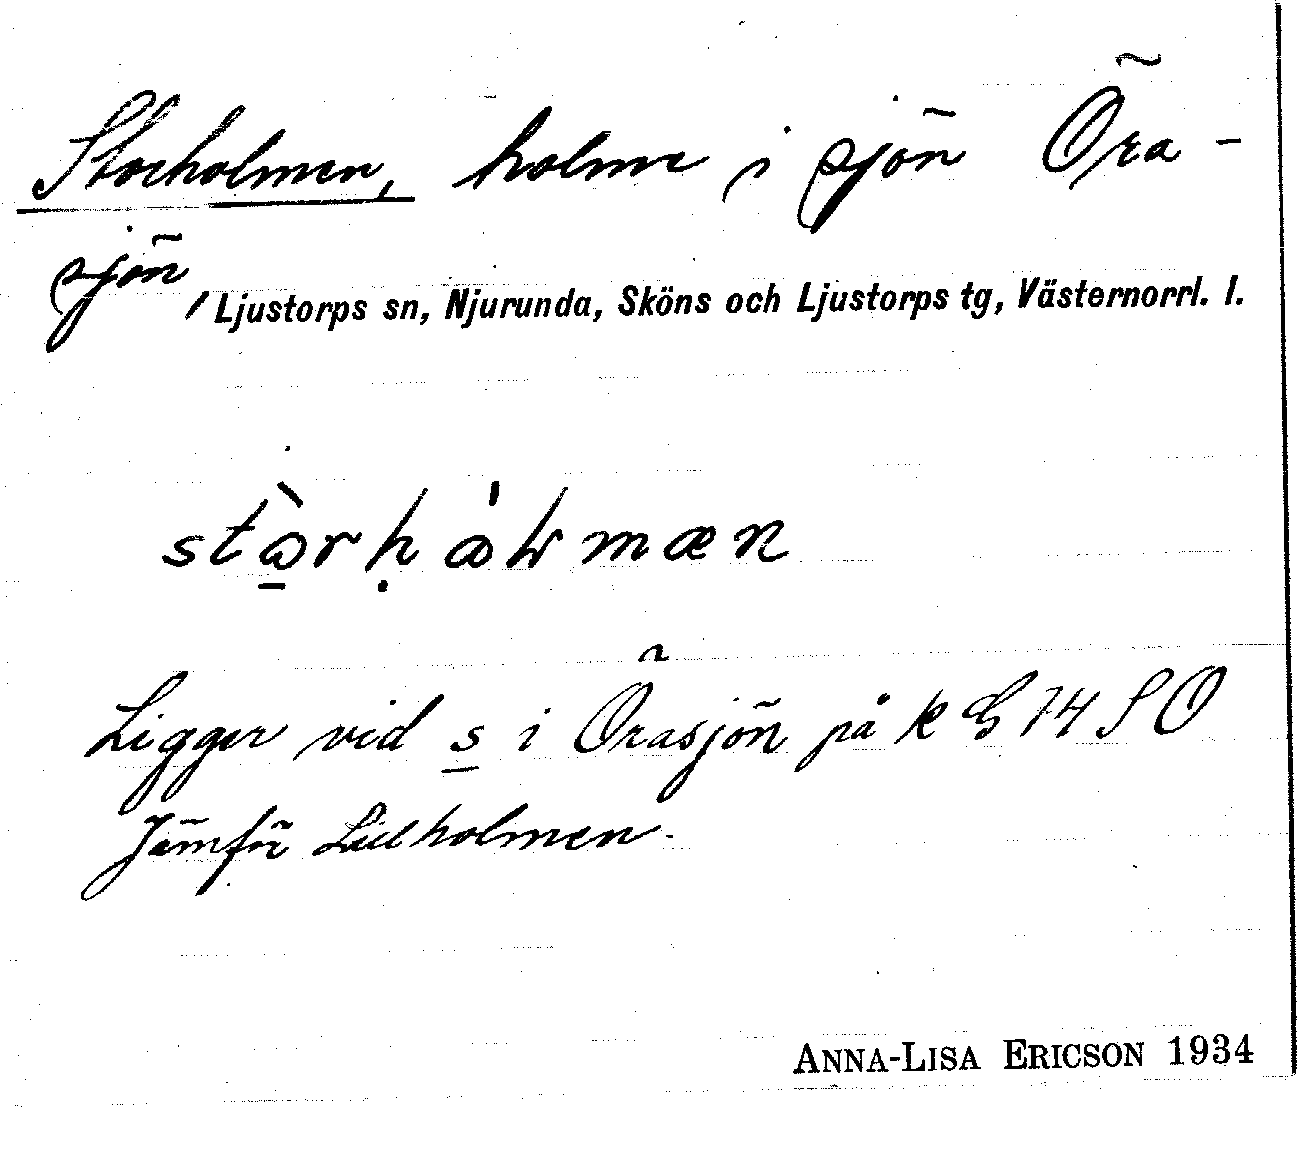 Storholmen, holme i sjön Öra-
sjön, Ljustorps sn, Njurunda, Sköns och Ljustorps tg, Västernorrl. l.
Ligger vid s i Örasjön på k G 74 SO
Jämför Lillholmen.
ANNA-LISA ERICSON 1934